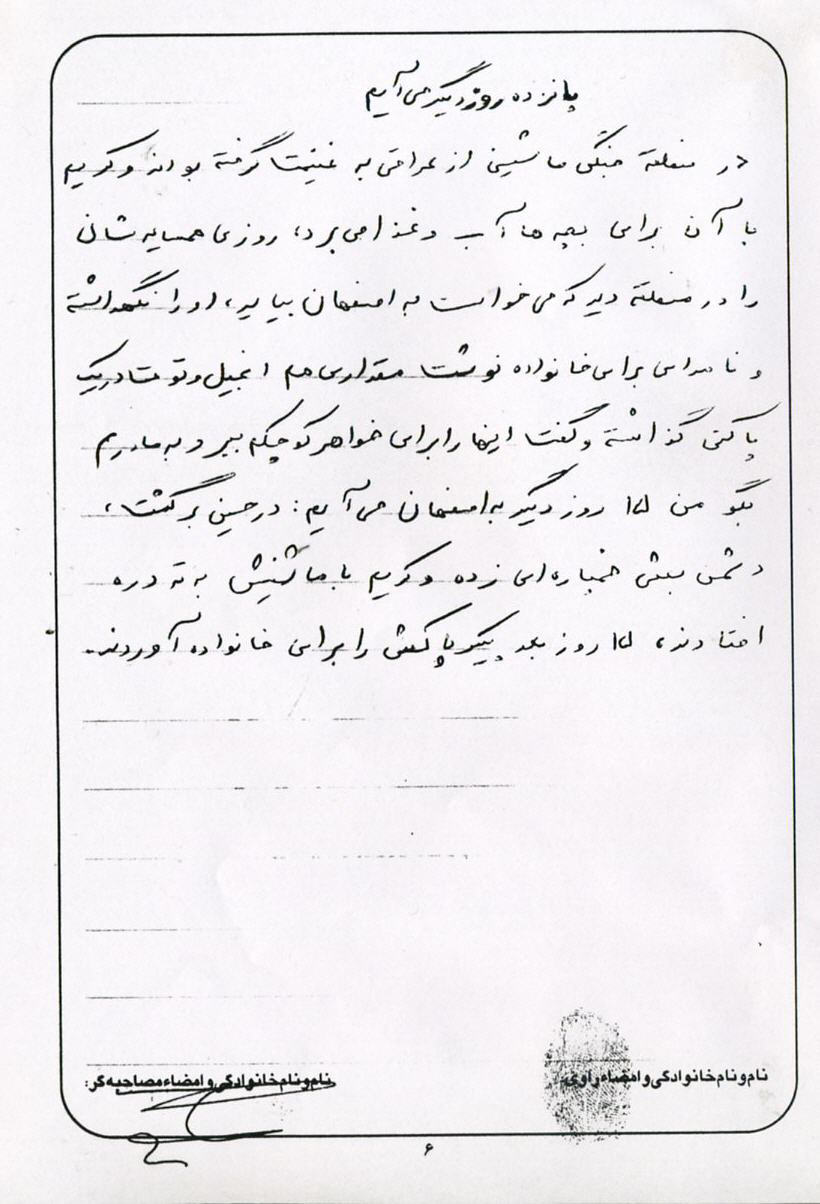 پانزده روز دیگر می آیم
در منطقه جنگی ماشینی از عراقی به غنیمت گرفته بودند و کریم
با آن برای بچه ها آب و غذا می برد، روزی همسایه شان
را در منطقه دید که می خواست به اصفهان بیاید، او را نگهداشته
و نامه ای برای خانواده نوشت مقداری هم آجیل و تو متادریک
پاکتی گذاشته و گفت اینها را برای خواهر کوچکم ببر و به مادرم
بگو من ۱۵ روز دیگر به اصفهان می آیم: در حین برگشت،
دشمن بعثی خمپاره ای زده و کریم با ماشینش به ته دره
افتادند، ۱۵ روز بعد پیکر پاکش را برای خانواده آوردند.
نام و نام خانوادگی و امضاء راوی:
نام و نام خانوادگی و امضاء مصاحبه گر:
۶